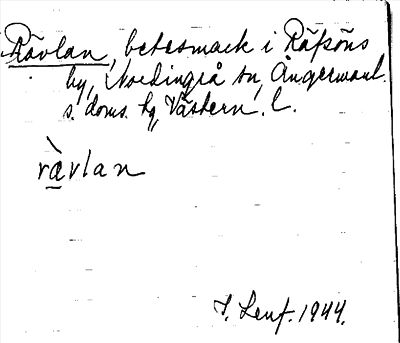 Rävlan, betesmark i Räfsöns
by, Nordingrå sn, Ångermanl.
s. doms. hg, Västern. l.
rævlan
Lenf. 1944.